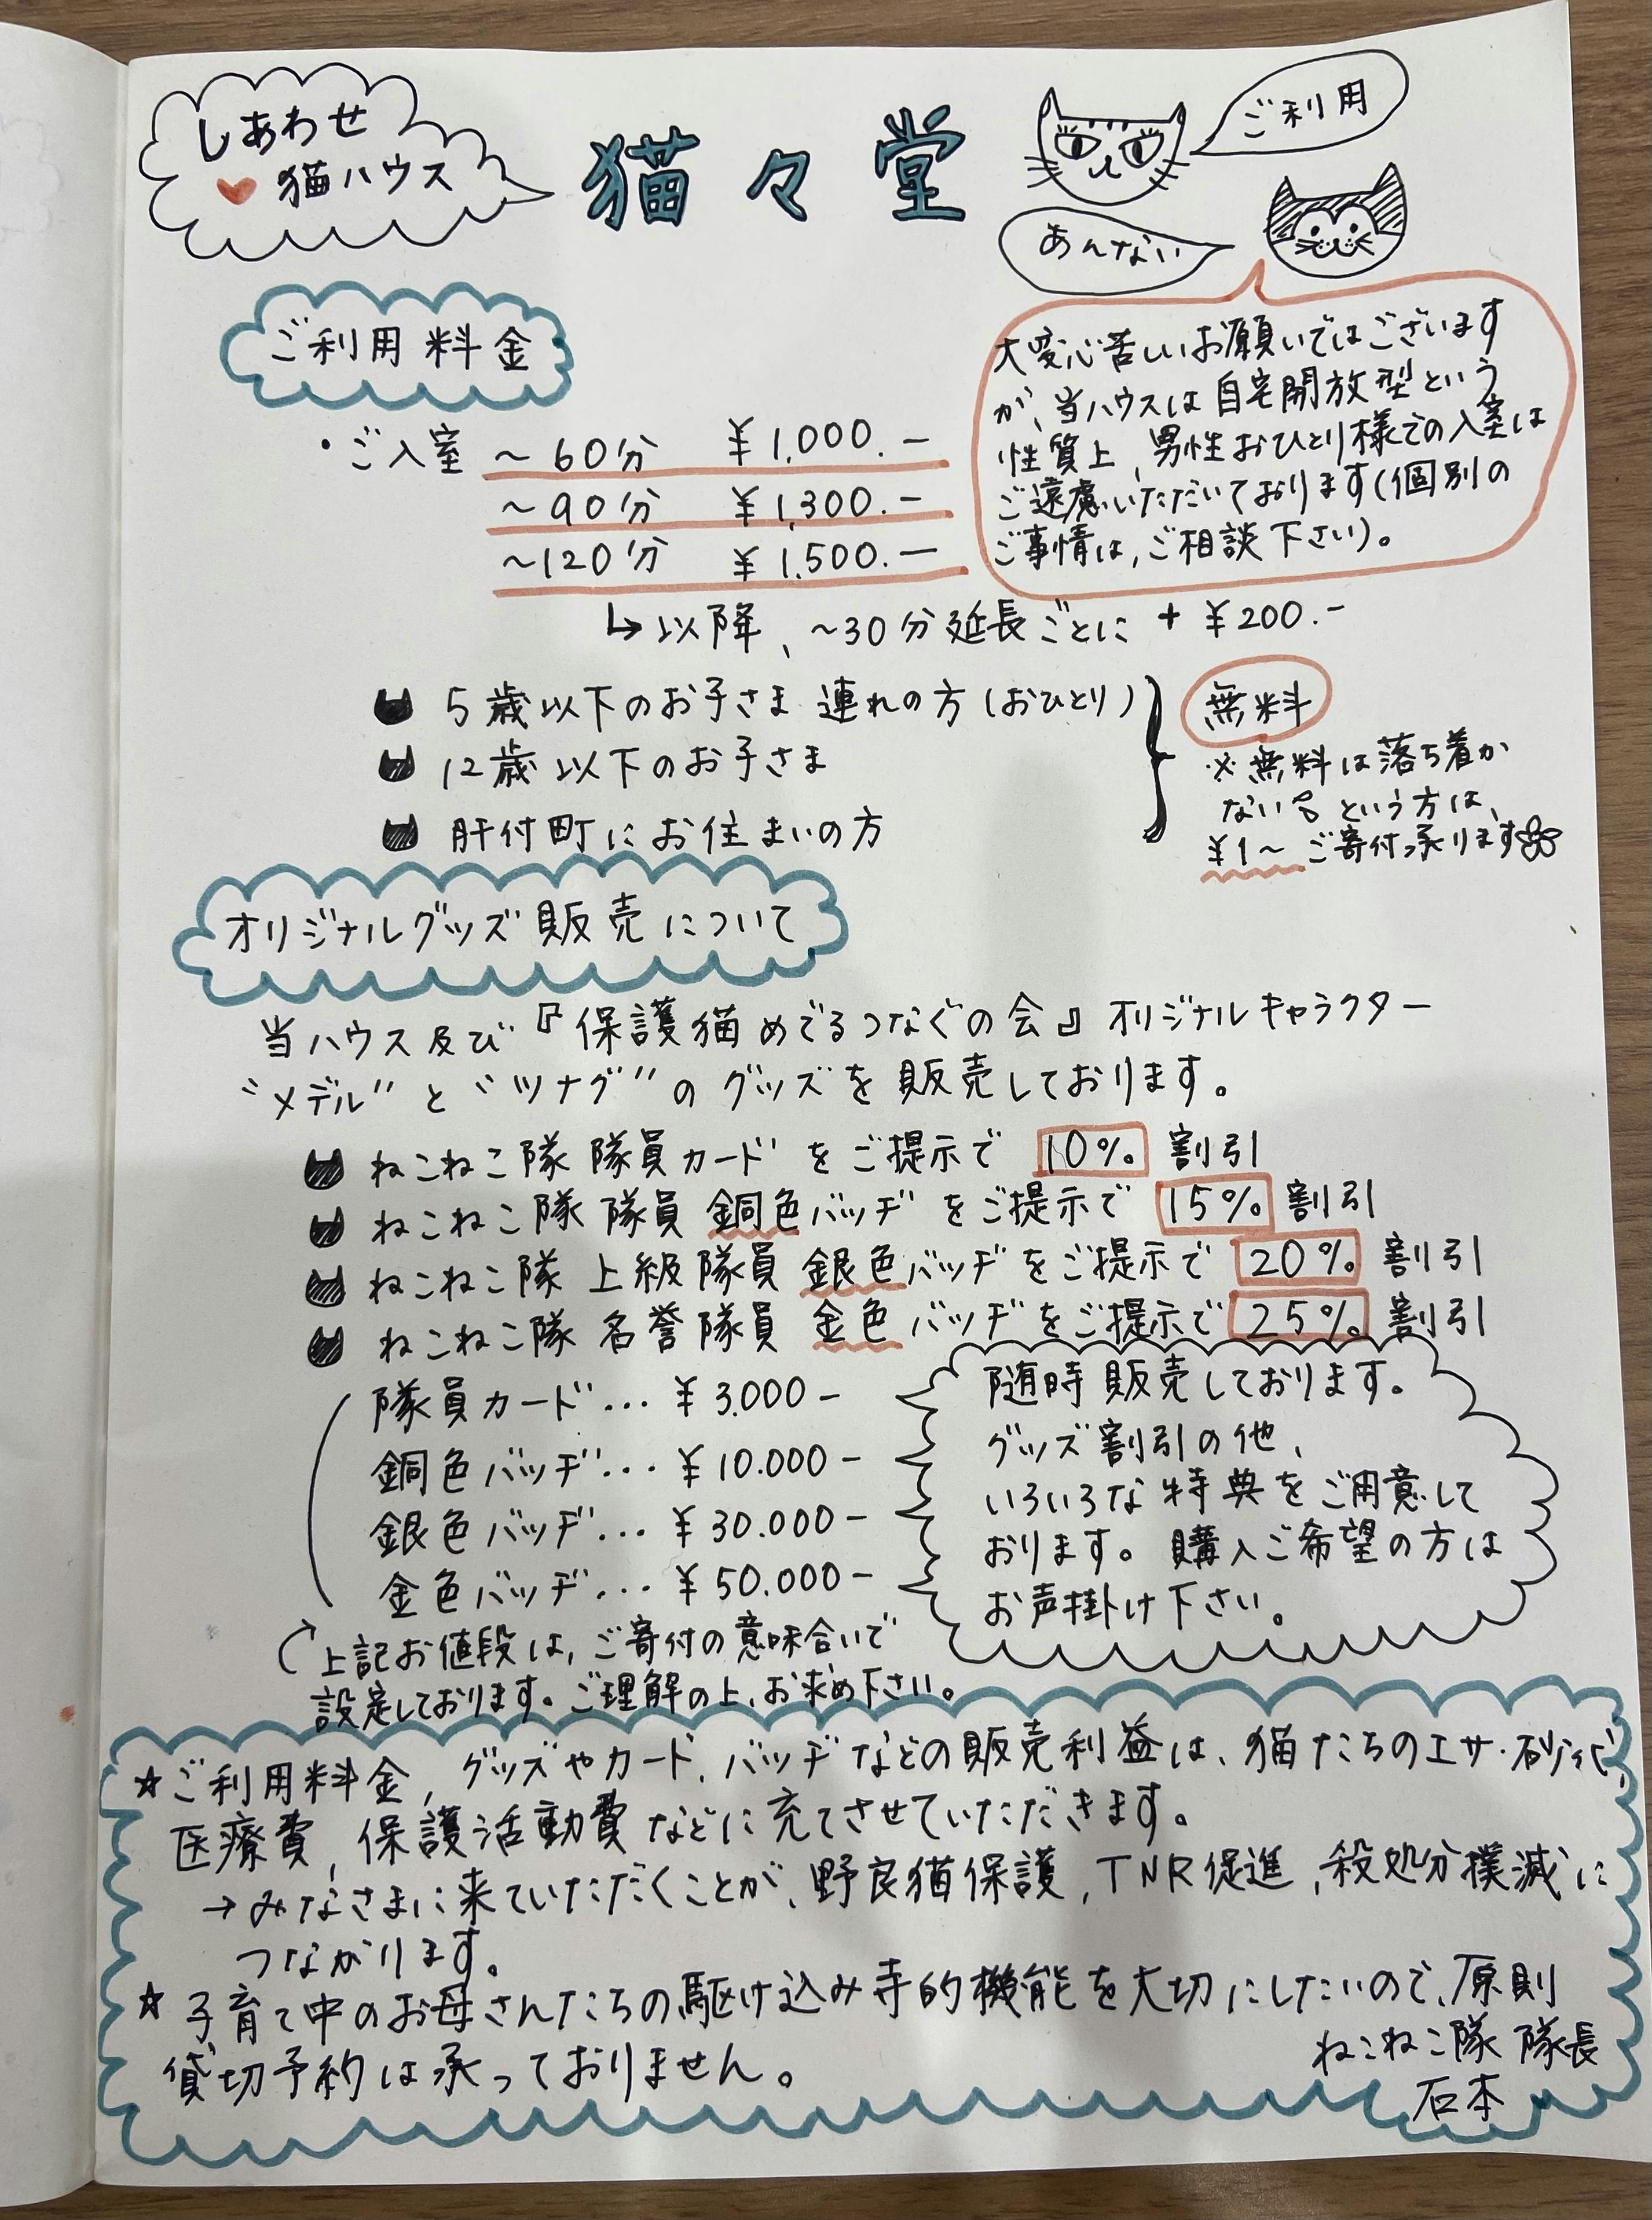 しあわせ
猫ハウス
猫々堂
ご利用
あんない
ご利用料金
大変心苦しいお願いではございます
が、当ハウスは自宅開放型という
性質上、男性おひとり様での入室は
ご遠慮いただいております(個別の
ご事情は、ご相談下さい)。
・ご入室 ~60分 ¥1,000.-
~90分 ¥1,300.-
~120分 ¥1,500.-
↳以降、~30分延長ごとに + ¥200.-
5歳以下のお子さま連れの方(おひとり)
12歳以下のお子さま
肝付町にお住まいの方
無料
※無料は落ち着か
ない という方は、
¥1~ ご寄付承ります
オリジナルグッズ販売について
当ハウス及び『保護猫めでるつなぐの会』オリジナルキャラクター
“メデル”と“ツナグ”のグッズを販売しております。
ねこねこ隊 隊員カードをご提示で 10% 割引
ねこねこ隊 隊員 銅色バッヂをご提示で 15% 割引
ねこねこ隊 上級隊員 銀色バッヂをご提示で 20% 割引
ねこねこ隊 名誉隊員 金色バッヂをご提示で 25% 割引
隊員カード... ¥3.000-
銅色バッヂ... ¥10.000-
銀色バッヂ... ¥30.000-
金色バッヂ... ¥50.000-
随時販売しております。
グッズ割引の他、
いろいろな特典をご用意して
おります。購入ご希望の方は
お声掛け下さい。
上記お値段は、ご寄付の意味合いで
設定しております。ご理解の上、お求め下さい。
☆ご利用料金、グッズやカード、バッヂなどの販売利益は、猫たちのエサ・砂代、
医療費、保護活動費などに充てさせていただきます。
→みなさまに来ていただくことが、野良猫保護、TNR促進、殺処分撲滅に
つながります。
☆子育て中のお母さんたちの駆け込み寺的機能を大切にしたいので、原則
貸切予約は承っておりません。
ねこねこ隊 隊長
石本